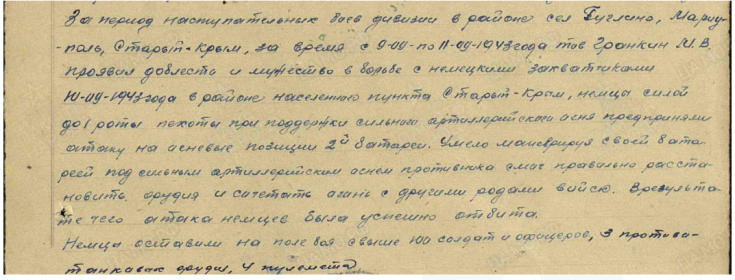 За период наступательных боев дивизии в районе сел Гуглино, Мариу-
-поль, Старый-Крым, за время с 9-09-по 11-09-1943 года тов Гранкин М.В.
проявил доблесть и мужество в борьбе с немецкими захватчиками
10-09-1943 года в районе населенного пункта Старый-Крым, немцы силой
до 1 роты пехоты при поддержки сильного артиллерийского огня предприняли
атаку на огневые позиции 2й батареи. Умело маневрируя своей бата-
реей под сильным артиллерийским огнем противника смог правильно расста-
новить орудия и сочетать огонь с другими родами войск. В результа-
те чего атака немцев была успешно отбита.
Немцы оставили на поле боя свыше 100 солдат и офицеров, 3 противо-
танковых орудия, 4 пулемета